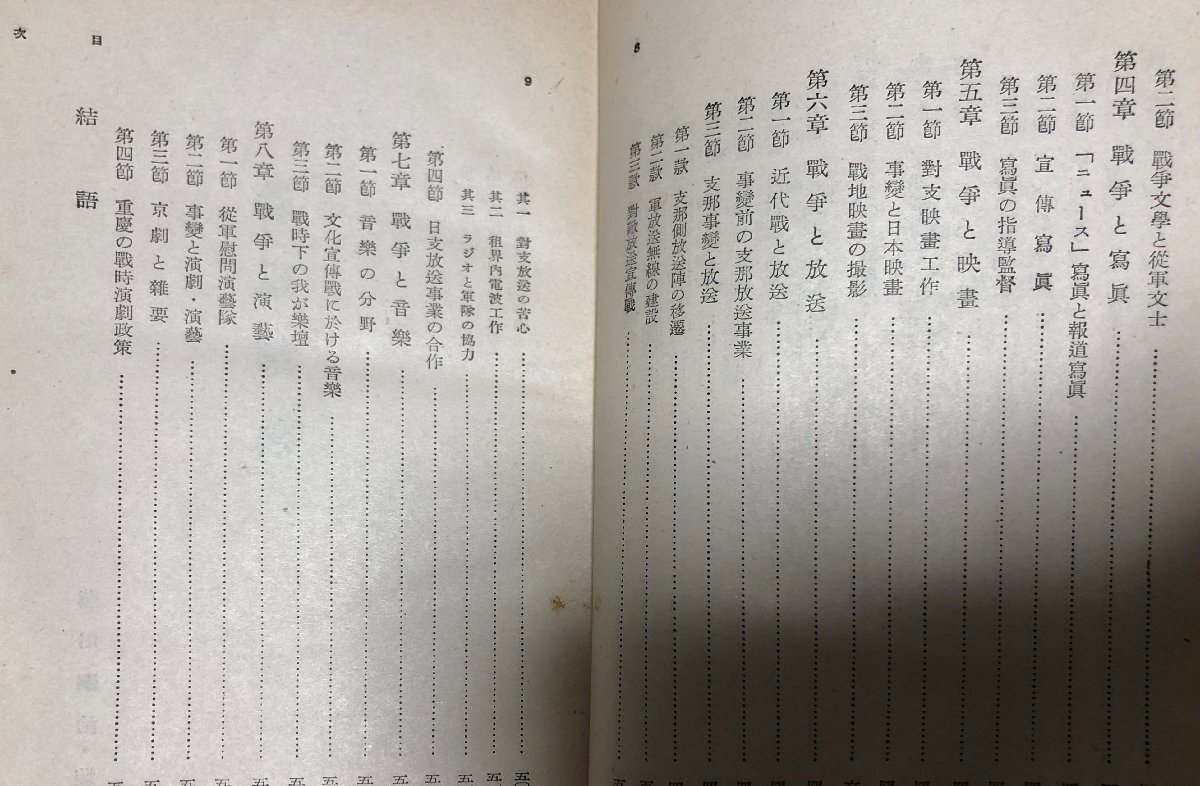 8
第二節 戰爭文學と從軍文士
第四章 戰爭と寫眞
第一節 「ニュース」寫眞と報道寫眞
第二節 宣傳寫眞
第三節 寫眞の指導監督
第五章 戰爭と映畫
第一節 對支映畫工作
第二節 事變と日本映畫
第三節 戰地映畫の撮影
第六章 戰爭と放送
第一節 近代戰と放送
第二節 事變前の支那放送事業
第三節 支那事變と放送
第一款 支那側放送陣の移遷
第二款 軍放送無線の建設
第三款 對敵放送宣傳戰
目次
9
其一 對支放送の苦心
其二 租界內電波工作
其三 ラジオと軍隊の協力
第四節 日支放送事業の合作
第七章 戰爭と音樂
第一節 音樂の分野
第二節 文化宣傳戰に於ける音樂
第三節 戰時下の我が樂壇
第八章 戰爭と演藝
第一節 從軍慰問演藝隊
第二節 事變と演劇・演藝
第三節 京劇と雜耍
第四節 重慶の戰時演劇政策
結語